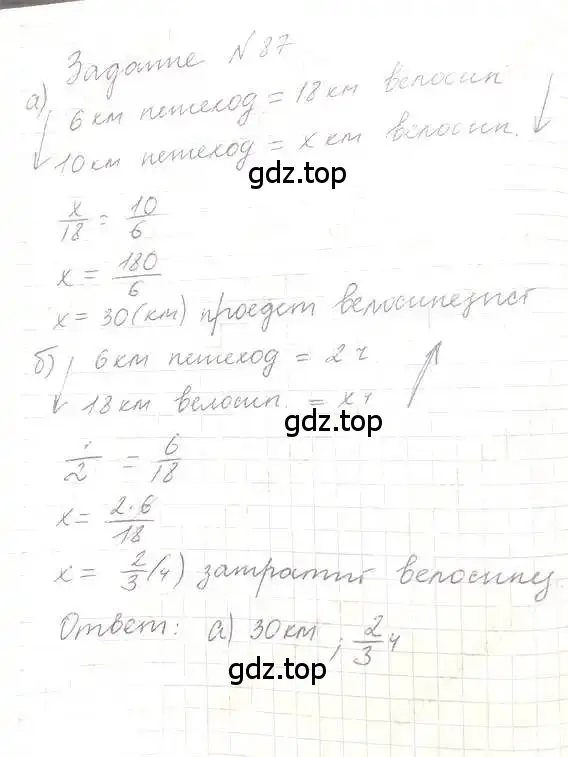 Задание №87
а) 6 км пешеход = 18 км велосип
10 км пешеход = x км велосип.
gdz.top
x/18 = 10/6
x = 180/6
x = 30 (км) проедет велосипедист
б) 6 км пешеход = 2 ч
18 км велосип. = x ч
gdz.top
/2 = 6/18
x = 2·6/18
x = 2/3 (ч) затратит велосипед
Ответ: а) 30 км ; 2/3 ч
gdz.top